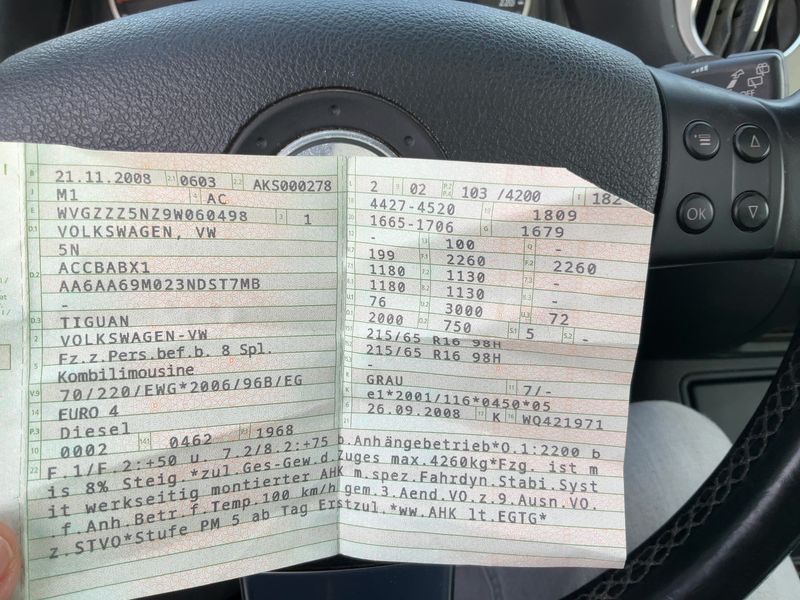 B 21.11.2008 2.1 0603 2.2 AKS000278
J M1 4 AC
E WVGZZZ5NZ9W060498 3 1
D.1 VOLKSWAGEN, VW
5N
D.2 ACCBABX1
AA6AA69M023NDST7MB
-
D.3 TIGUAN
2 VOLKSWAGEN-VW
5 Fz.z.Pers.bef.b. 8 Spl.
Kombilimousine
V.9 70/220/EWG*2006/96B/EG
14 EURO 4
P.3 Diesel
10 0002 14.1 0462 P.1 1968
L 2 9 02 P.2 P.4 103 /4200 T 182
18 4427-4520 19 1809
20 1665-1706 G 1679
12 - 13 100 Q -
199 2260 2260
1180 1130 -
1180 1130 -
U.1 76 U.2 3000 U.3 72
O.1 2000 O.2 750 S.1 5 S.2 -
215/65 R16 98H
215/65 R16 98H
-
R GRAU 11 7/-
K e1*2001/116*0450*05
6 26.09.2008 17 K 16 WQ421971
21
22 F.1/F.2:+50 u. 7.2/8.2:+75 b.Anhängebetrieb*O.1:2200 b
is 8% Steig.*zul.Ges-Gew.d.Zuges max.4260kg*Fzg. ist m
it werkseitig montierter AHK m.spez.Fahrdyn.Stabi.Syst
.f.Anh.Betr.f.Temp.100 km/h gem.3.Aend.VO.z.9 Ausn.VO.
z.STVO*Stufe PM 5 ab Tag Erstzul.*ww.AHK lt.EGTG*
OK
OFF